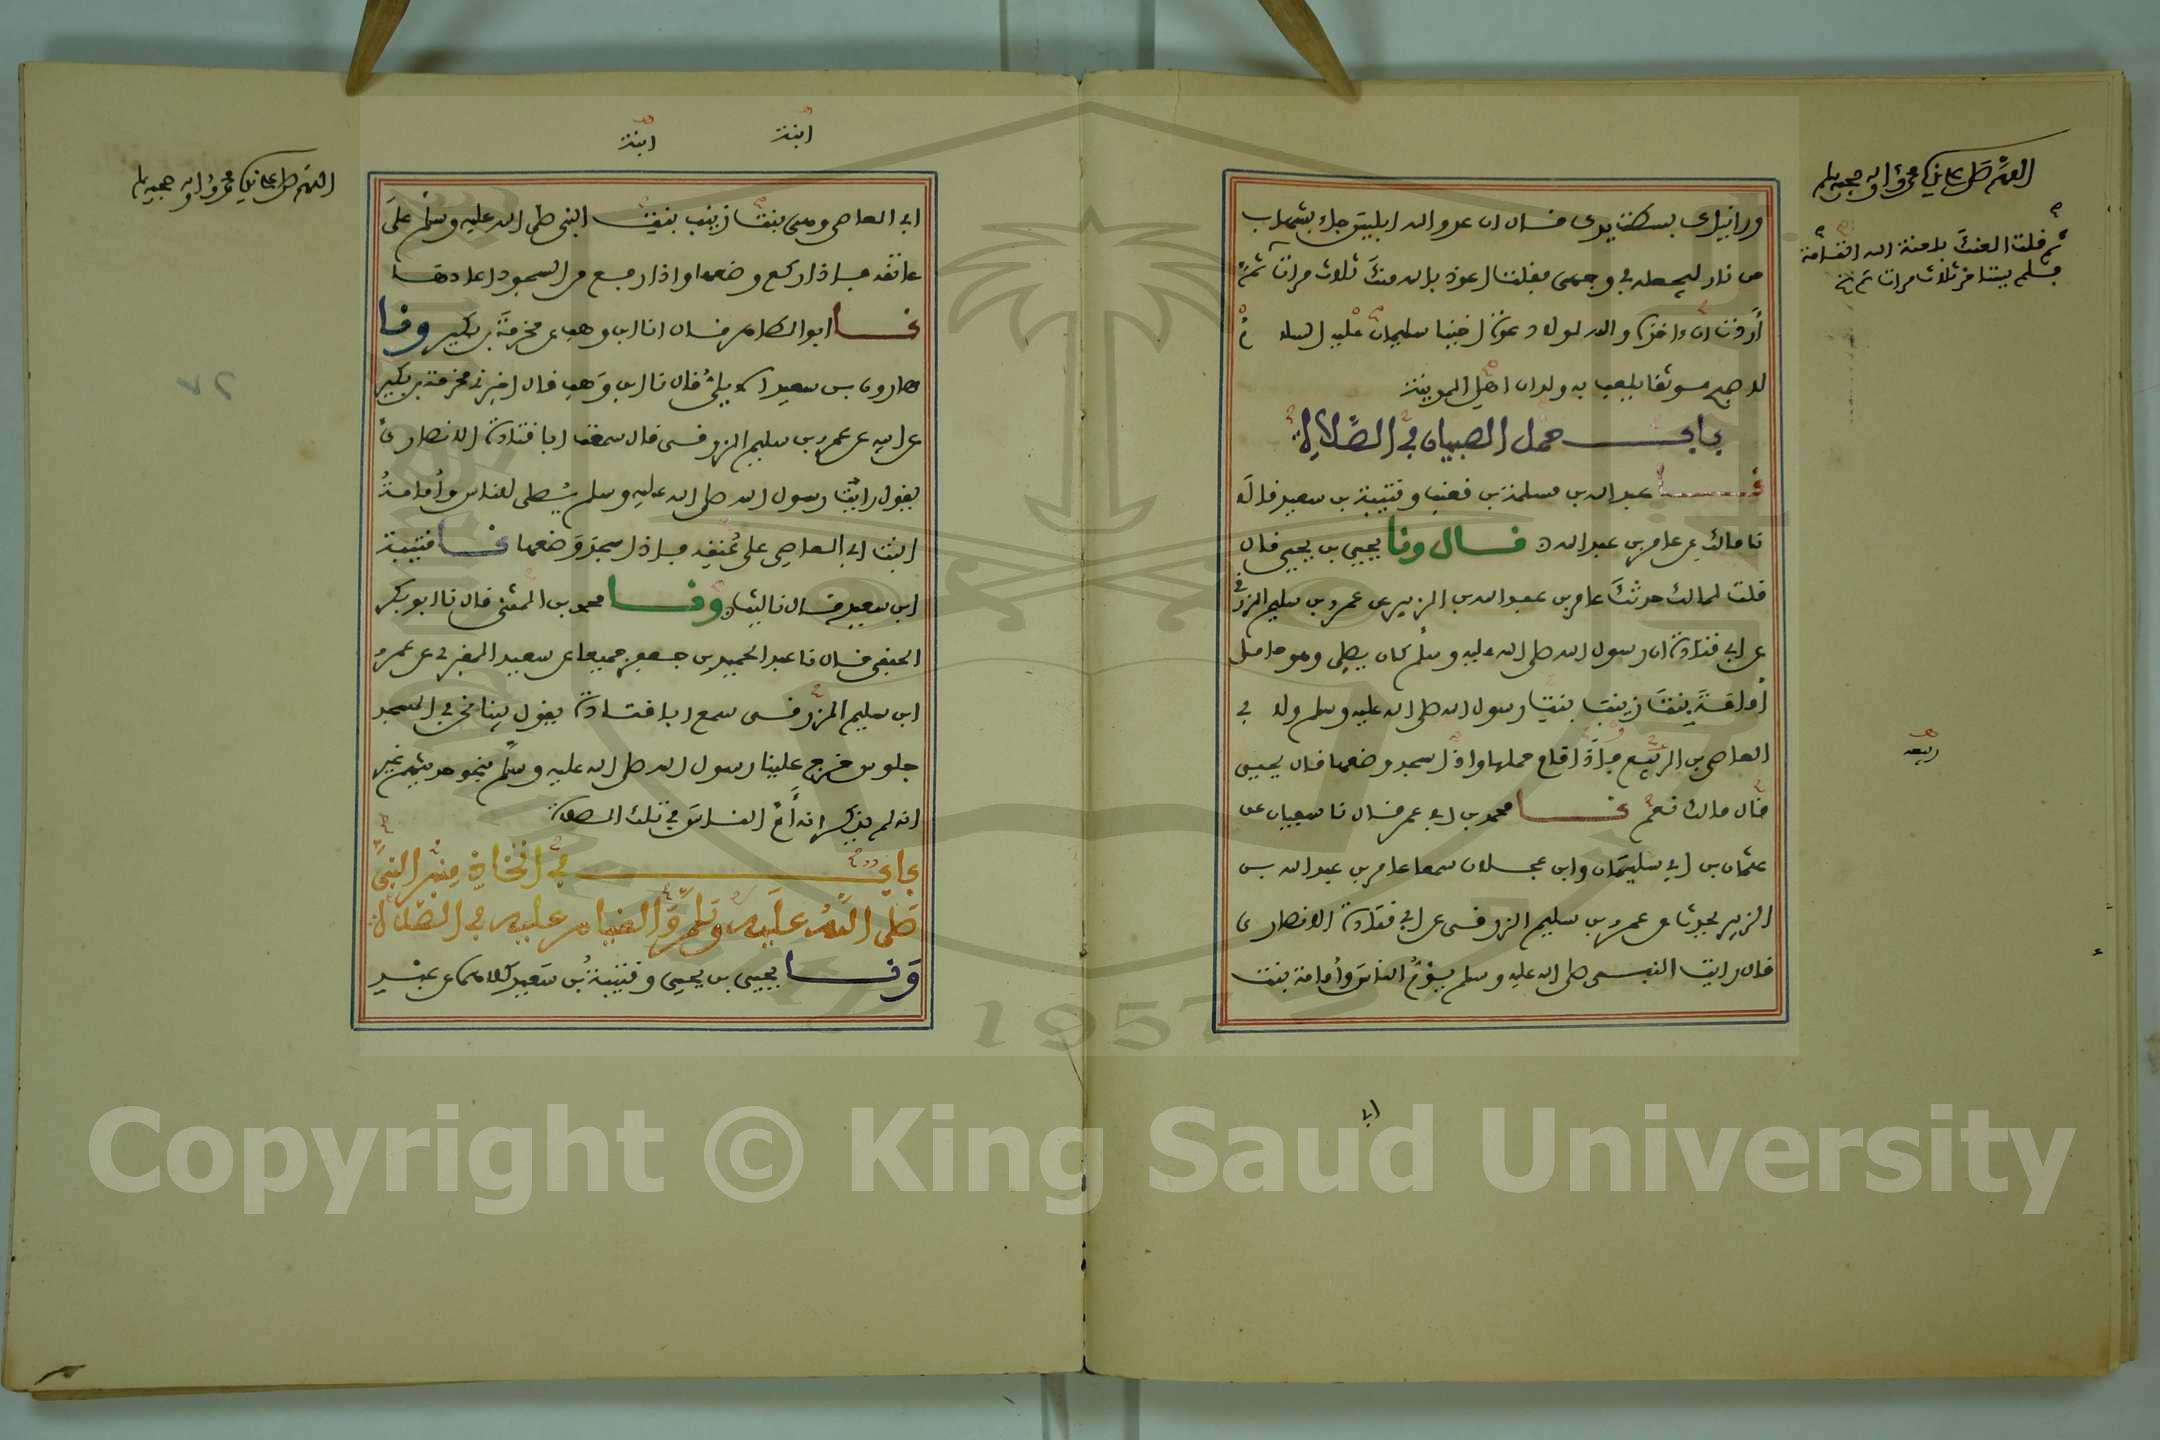 اللهم صل على نبيك محمد وآله وصحبه وسلم
ثم قلت العنك بلعنة الله التامة
فلم يستاخر ثلاث مرات ثم
وراينك بسطت يدك فال ان عدو الله ابليس جاء بشهاب
من نار ليجعله في وجهي فقلت اعوذ بالله منك ثلاث مرات ثم
أردت ان اخذه والله لولا دعوة اخينا سليمان عليه السلام
لاصبح موثفا يلعب به ولدان اهل المدينة
باب حمل الصبيان في الصلاة
نا عبد الله بن مسلمة بن فعنب وفتيبة بن سعيد فالا
نا مالك عن عامر بن عبد الله فال ونا يحيى بن يحيى فال
فلت لمالك حدثك عامر بن عبد الله بن الزبير عن عمرو بن سليم الزرفي
عن ابي فتادة ان رسول الله صلى الله عليه وسلم كان يصلي وهو حامل
أمامة بنت زينب بنت رسول الله صلى الله عليه وسلم ولابي
العاصي بن الربيع فاذا فام حملها واذا سجد وضعها فال يحيى
ربيعة
فال مالك نعم نا محمد بن ابي عمر فال نا سفيان عن
عثمان بن ابي سليمان وابن عجلان سمعا عامر بن عبد الله بن
الزبير يحدث عن عمرو بن سليم الزرفي عن ابي فتادة الانصاري
فال رايت النبي صلى الله عليه وسلم يؤم الناس وأمامة بنت
ابي
ابنة
ابنة
اللهم صل على نبيك محمد وآله وصحبه وسلم
ابي العاصي وهي بنت زينب بنت النبي صلى الله عليه وسلم على
عاتفه فاذا ركع وضعها واذا رفع من السجود اعادها
نا ابو الطاهر فال انا ابن وهب عن مخرمة بن بكير ونا
هارون بن سعيد الايلي فال نا ابن وهب فال اخبرني مخرمة بن بكير
عن ابيه عن عمرو بن سليم الزرفي فال سمعت ابا فتادة الانصاري
يفول رايت رسول الله صلى الله عليه وسلم يصلي للناس وأمامة
ابنت ابي العاصي على عنفه فاذا سجد وضعها نا فتيبة
ابن سعيد فال نا ليث ونا محمد بن المثنى فال نا ابو بكر
الحنفي فال نا عبد الحميد بن جعفر جميعا عن سعيد المفبري عن عمرو
ابن سليم الزرفي سمع ابا فتادة يفول بينا نحن في المسجد
جلوس خرج علينا رسول الله صلى الله عليه وسلم بنحو حديثهم غير
انه لم يذكر انه أم الناس في تلك الصلاة
باب في اتخاذ منبر النبي
صلى الله عليه وسلم والفيام عليه في الصلاة
ونا يحيى بن يحيى وفتيبة بن سعيد كلاهما عن عبد
1957
Copyright © King Saud University